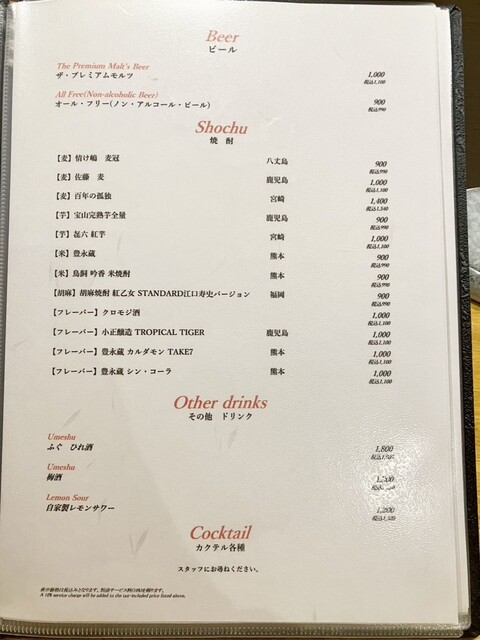 Beer
ビール
The Premium Malt's Beer
ザ・プレミアムモルツ 1,000
税込1,100
All Free(Non-alcoholic Beer)
オール・フリー(ノン・アルコール・ビール) 900
税込990
Shochu
焼 酎
【麦】情け嶋 麦冠 八丈島 900
税込990
【麦】佐藤 麦 鹿児島 1,000
税込1,100
【麦】百年の孤独 宮崎 1,400
税込1,540
【芋】宝山完熟芋全量 鹿児島 900
税込990
【芋】㐂六 紅芋 宮崎 1,000
税込1,100
【米】豊永蔵 熊本 900
税込990
【米】鳥飼 吟香 米焼酎 熊本 900
税込990
【胡麻】胡麻焼酎 紅乙女 STANDARD江口寿史バージョン 福岡 900
税込990
【フレーバー】クロモジ酒 1,000
税込1,100
【フレーバー】小正醸造 TROPICAL TIGER 鹿児島 1,000
税込1,100
【フレーバー】豊永蔵 カルダモン TAKE7 熊本 1,000
税込1,100
【フレーバー】豊永蔵 シン・コーラ 熊本 1,000
税込1,100
Other drinks
その他 ドリンク
Umeshu
ふぐ ひれ酒 1,800
Umeshu
梅酒
Lemon Sour
自家製レモンサワー 1,200
税込1,320
Cocktail
カクテル各種
スタッフにお尋ねください。
表示価格は税込みとなります。別途サービス料10%を頂戴します。
A 10% service charge will be added to the tax-included price listed above.